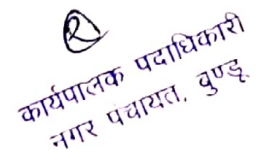 कार्यपालक पदाधिकारी
नगर पंचायत, बुण्डू